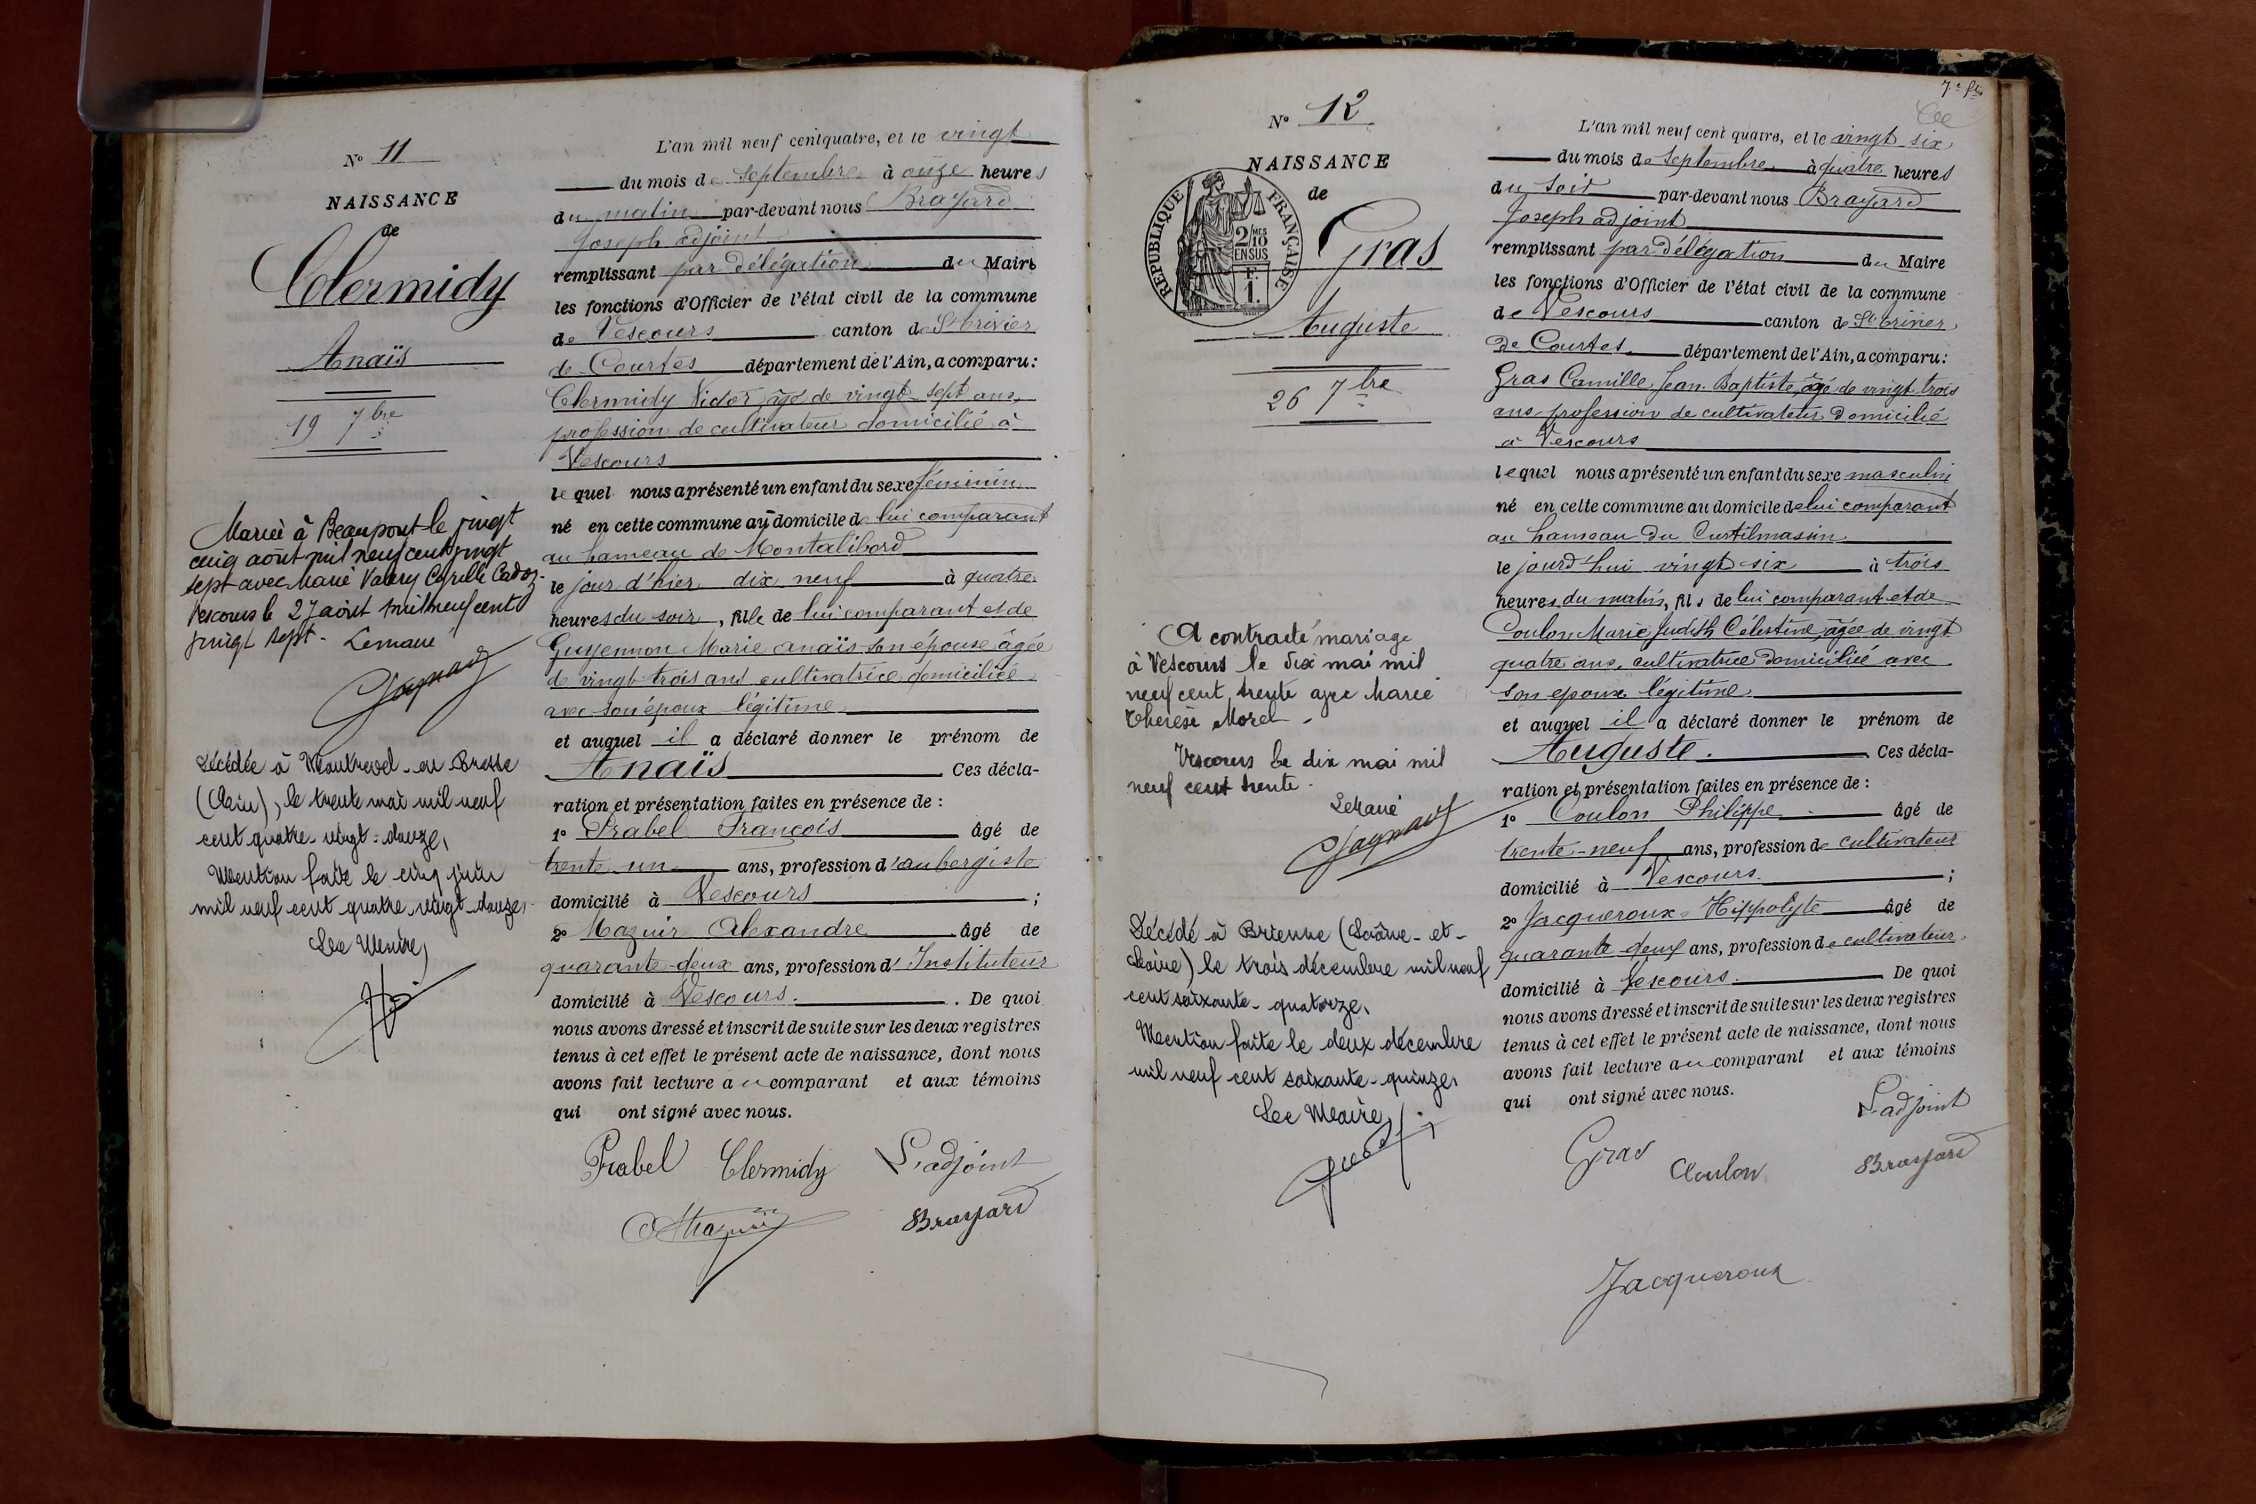 N° 11
NAISSANCE
de
Clermidy
Anaïs
19 7bre
Mariée à Beaupont le vingt
cinq août mil neuf cent vingt
sept avec Marie Valéry Cyrille Cadoz.
Vescours le 27 août mil neuf cent
vingt sept. Le maire
Décédée à Montrevel-en-Bresse
(Ain), le trente mai mil neuf
cent quatre-vingt-douze,
Mention faite le cinq juin
mil neuf cent quatre-vingt-douze,
Le Maire,
L'an mil neuf cent quatre, et le vingt
du mois de septembre à onze heures
du matin par-devant nous Brayard
Joseph adjoint
remplissant par délégation du Maire
les fonctions d'Officier de l'état civil de la commune
de Vescours canton de St trivier
de Courtes département de l'Ain, a comparu:
Clermidy Victor âgé de vingt-sept ans,
profession de cultivateur domicilié à
Vescours
lequel nous a présenté un enfant du sexe féminin
né en cette commune au domicile de lui comparant
au hameau de Montalibord
le jour d'hier dix neuf à quatre
heures du soir, fille de lui comparant et de
Guyennon Marie anaïs son épouse âgée
de vingt-trois ans cultivatrice domiciliée
avec son époux légitime
et auquel il a déclaré donner le prénom de
Anaïs Ces décla-
ration et présentation faites en présence de :
1° Prabel François âgé de
trente un ans, profession d'aubergiste
domicilié à Vescours ;
2° Mazuir Alexandre âgé de
quarante-deux ans, profession d'Instituteur
domicilié à Vescours. De quoi
nous avons dressé et inscrit de suite sur les deux registres
tenus à cet effet le présent acte de naissance, dont nous
avons fait lecture au comparant et aux témoins
qui ont signé avec nous.
Prabel Clermidy L'adjoint
AMazuir Brayard
7e ft
N° 12
NAISSANCE
de
RÉPUBLIQUE FRANÇAISE
2/10
MES
EN SUS
F.
1.
Gras
Auguste
26 7bre
A contracté mariage
à Vescours le dix mai mil
neuf cent trente avec Marie
Thérèse Morel.
Vescours le dix mai mil
neuf cent trente.
Le Maire
Décédé à Brienne (Saône-et-
Loire) le trois décembre mil neuf
cent soixante-quatorze,
Mention faite le deux décembre
mil neuf cent soixante-quinze,
Le Maire,
L'an mil neuf cent quatre, et le vingt six
du mois de septembre à quatre heures
du soir par-devant nous Brayard
Joseph adjoint
remplissant par délégation du Maire
les fonctions d'Officier de l'état civil de la commune
de Vescours canton de St trivier
de Courtes département de l'Ain, a comparu:
Gras Camille Jean-Baptiste, âgé de vingt trois
ans profession de cultivateur domicilié
à Vescours
lequel nous a présenté un enfant du sexe masculin
né en cette commune au domicile de lui comparant
au hameau du Curtilmasin
le jourd'hui vingt-six à trois
heures du matin, fils de lui comparant et de
Coulon Marie Judith Célestine, âgée de vingt
quatre ans, cultivatrice domiciliée avec
son époux légitime
et auquel il a déclaré donner le prénom de
Auguste. Ces décla-
ration et présentation faites en présence de :
1° Coulon Philippe âgé de
trente-neuf ans, profession de cultivateur
domicilié à Vescours ;
2° Jacqueroux Hippolyte âgé de
quarante-deux ans, profession de cultivateur
domicilié à Vescours. De quoi
nous avons dressé et inscrit de suite sur les deux registres
tenus à cet effet le présent acte de naissance, dont nous
avons fait lecture au comparant et aux témoins
qui ont signé avec nous.
L'adjoint
Gras Coulon Brayard
Jacqueroux